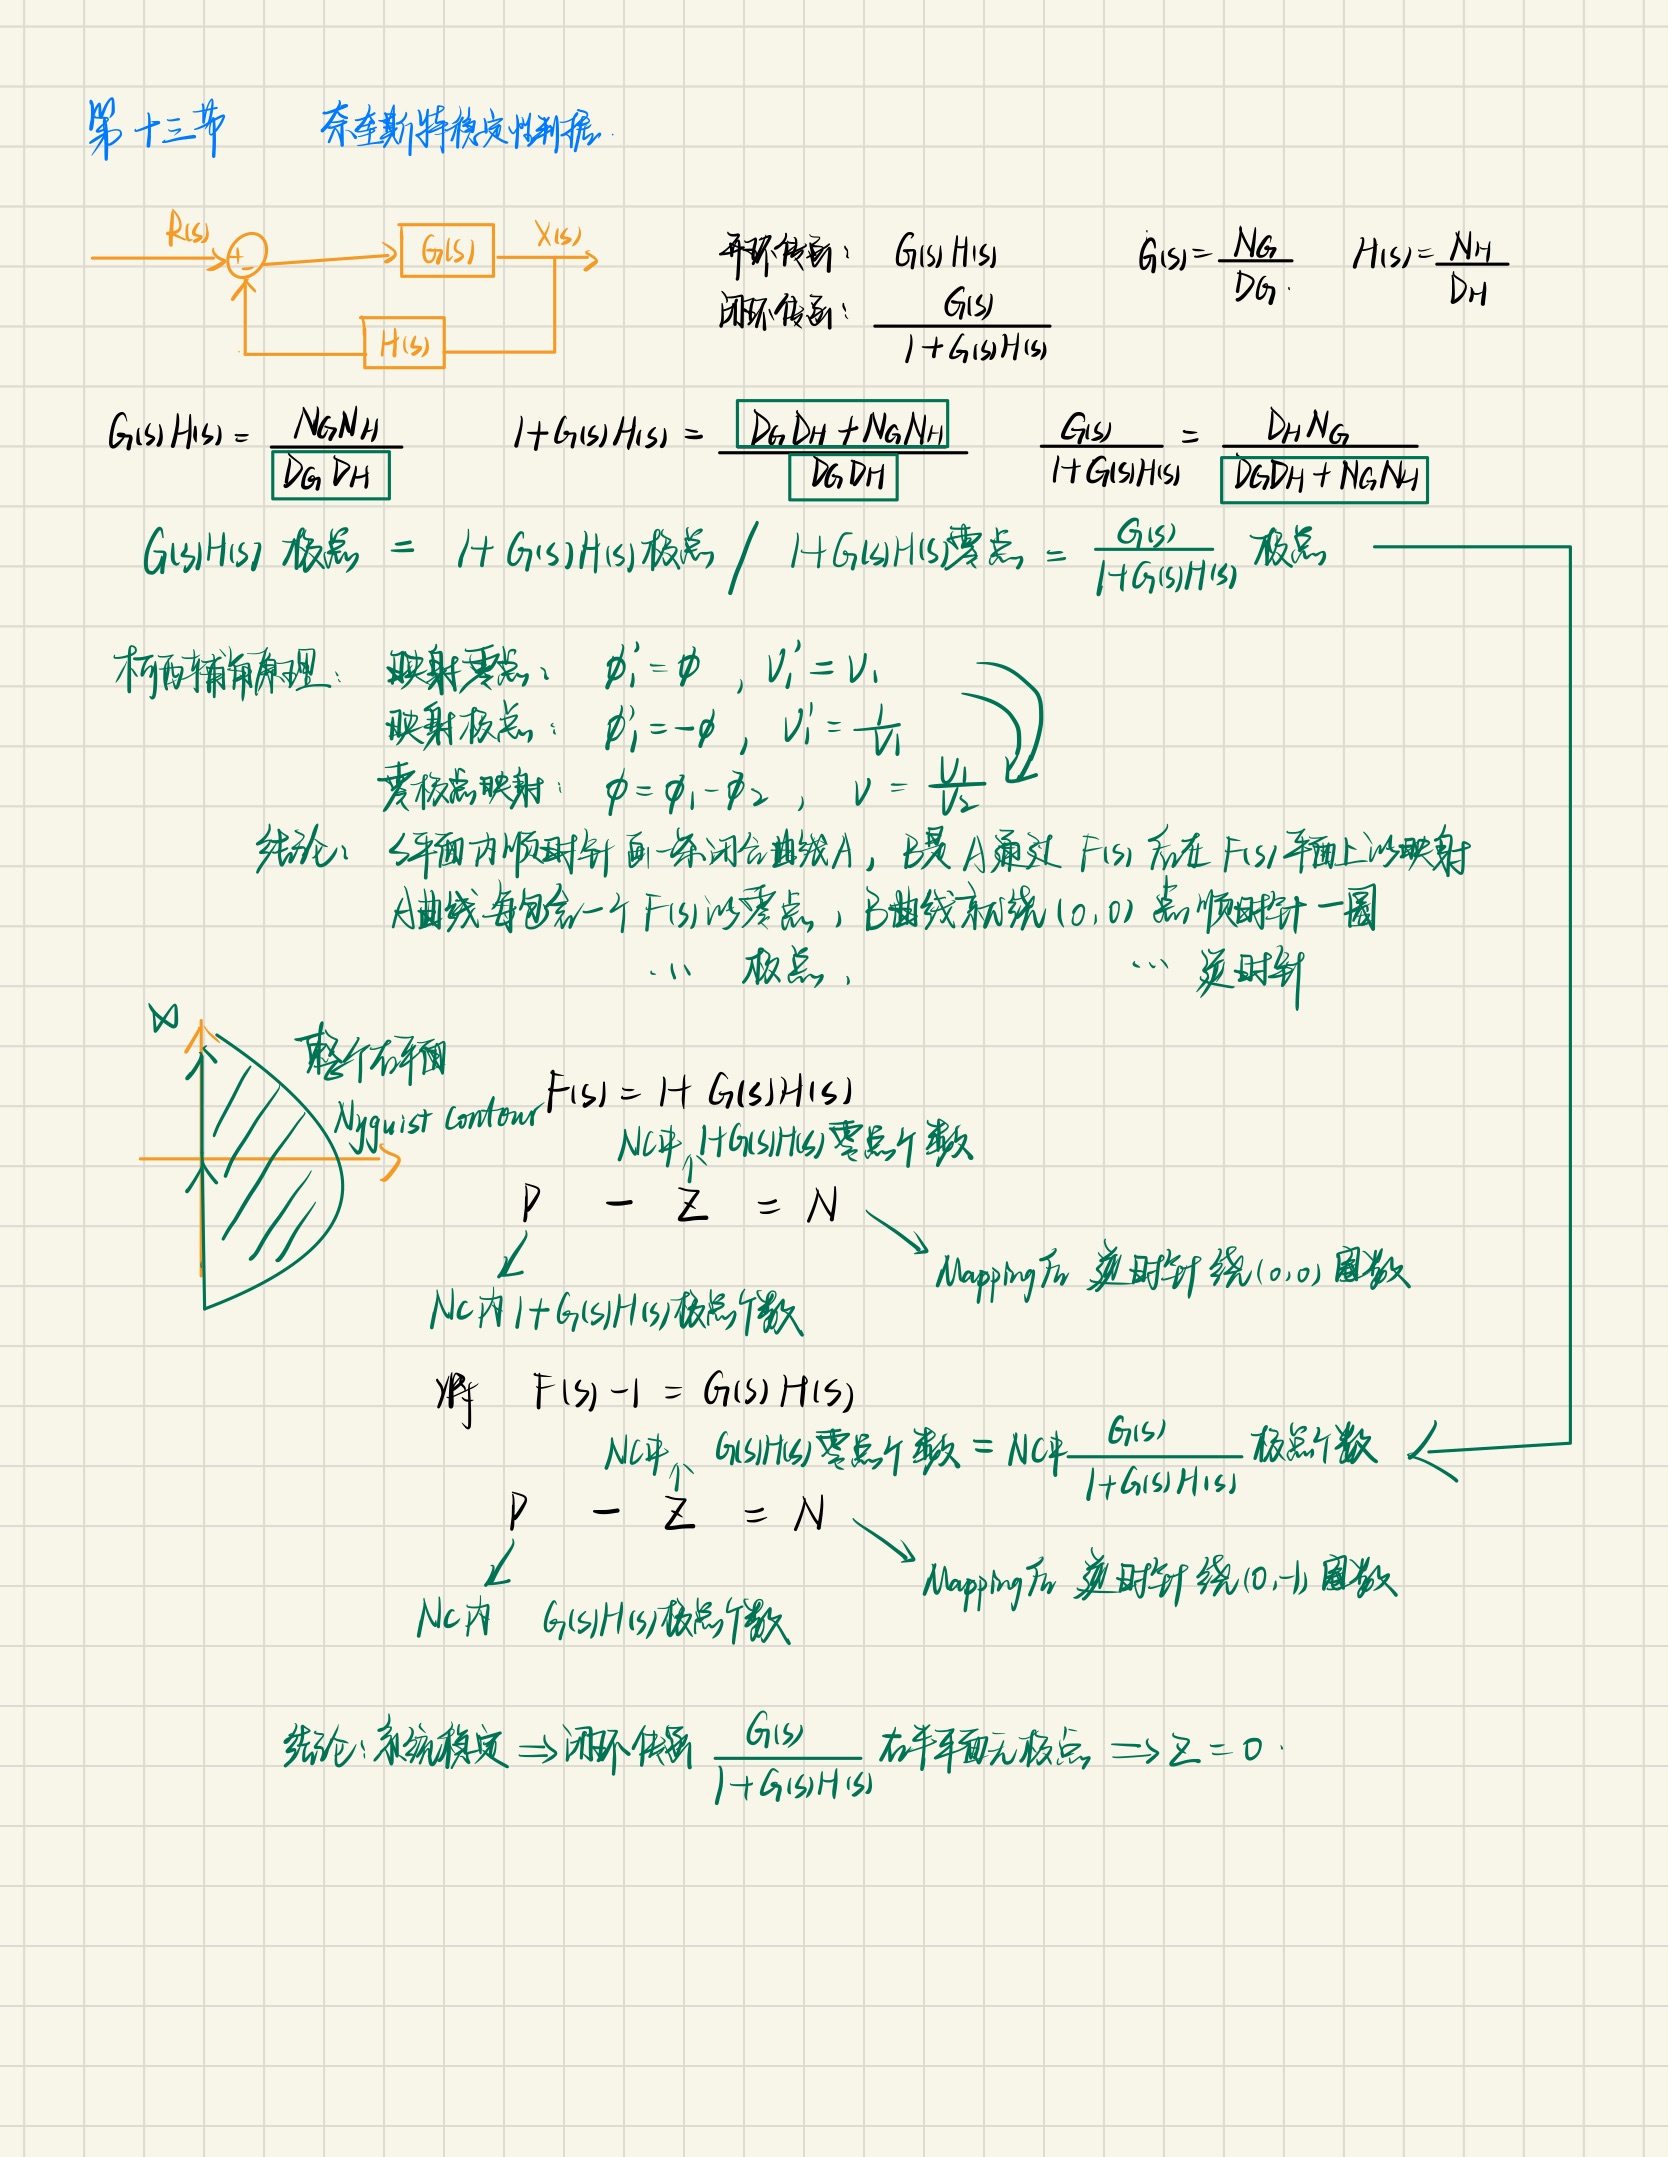 第十三节 奈奎斯特稳定性判据.
R(s) + - G(s) X(s)
H(s)
开环传函: G(s)H(s) G(s)=NG/DG. H(s)=NH/DH
闭环传函: G(s)/(1+G(s)H(s))
G(s)H(s) = NGNH/(DG DH) 1+G(s)H(s) = (DG DH+NGNH)/(DG DH) G(s)/(1+G(s)H(s)) = DH NG/(DGDH+NGNH)
G(s)H(s) 极点 = 1+G(s)H(s)极点 / 1+G(s)H(s)零点 = G(s)/(1+G(s)H(s)) 极点
柯西辅角原理: 映射零点: ϕ₁' = ϕ , V₁' = V₁
映射极点: ϕ₁' = -ϕ , V₁' = 1/V₁
零极点映射: ϕ = ϕ₁-ϕ₂ , V = V₁/V₂
结论: S平面内顺时针画一条闭合曲线A, B是A通过F(s)后在F(s)平面上的映射
A曲线每包含一个F(s)的零点, B曲线就绕(0,0)点顺时针一圈
… 极点, … 逆时针
∞
整个右平面
Nyquist contour
F(s) = 1+ G(s)H(s)
NC中 1+G(s)H(s)零点个数
P - Z = N
Mapping后 逆时针绕(0,0)圈数
NC内 1+G(s)H(s)极点个数
将 F(s)-1 = G(s)H(s)
NC中 G(s)H(s)零点个数 = NC中 G(s)/(1+G(s)H(s)) 极点个数
P - Z = N
Mapping后 逆时针绕(0,-1)圈数
NC内 G(s)H(s)极点个数
结论: 系统稳定 ⇒ 闭环传函 G(s)/(1+G(s)H(s)) 右半平面无极点 ⇒ Z = 0.